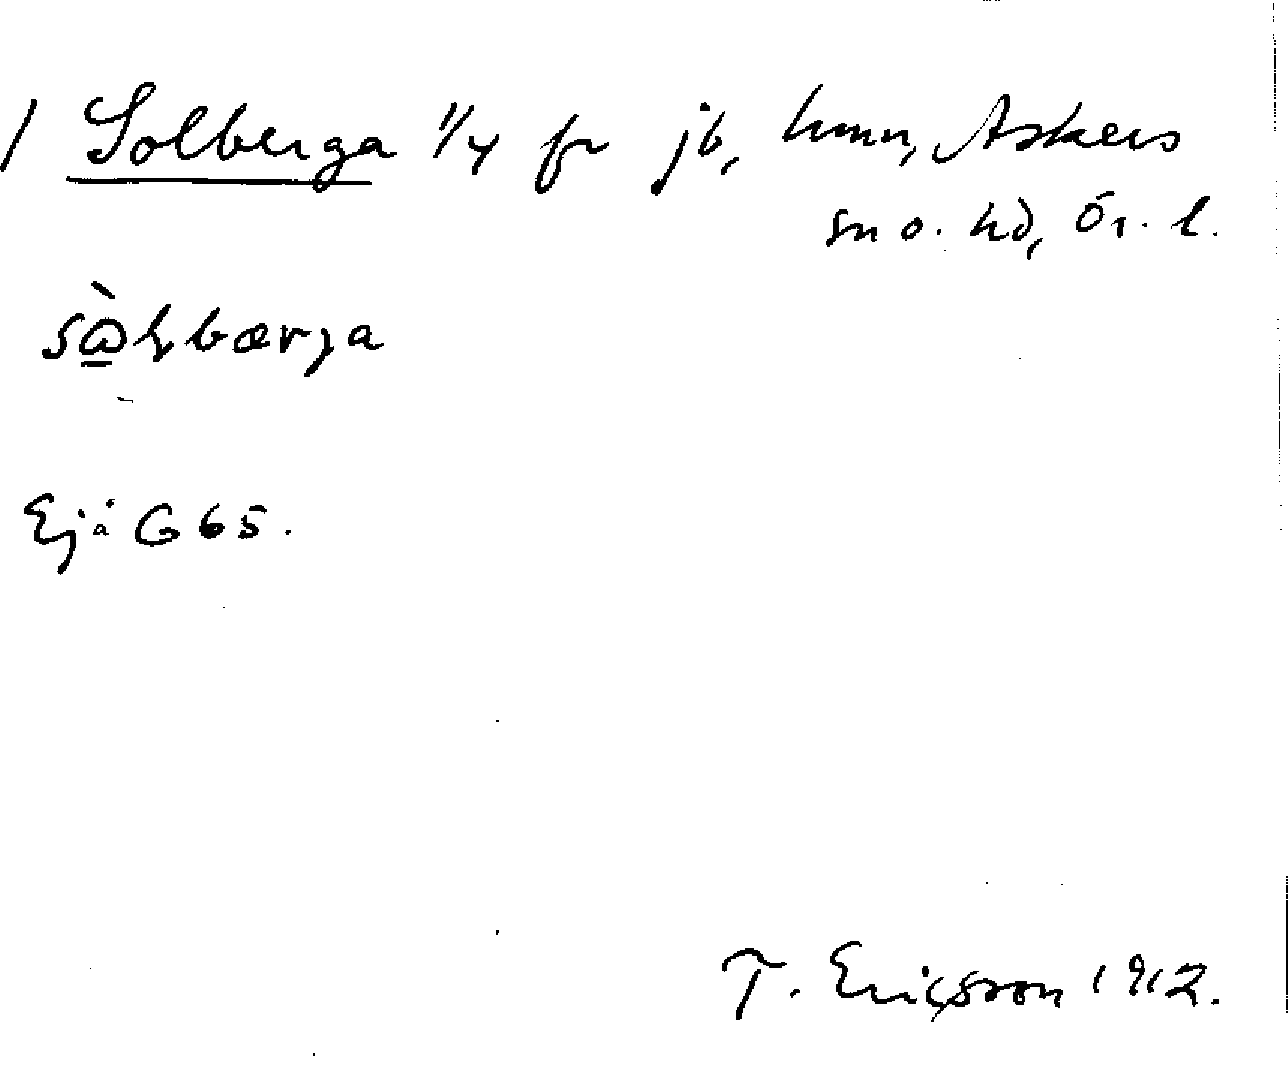 / Solberga 1/4 fr jb, hmn, Askers
sn o. hd, Ör. l.
sὼɫbærja
Ej å G 65.
T. Ericsson 1912.